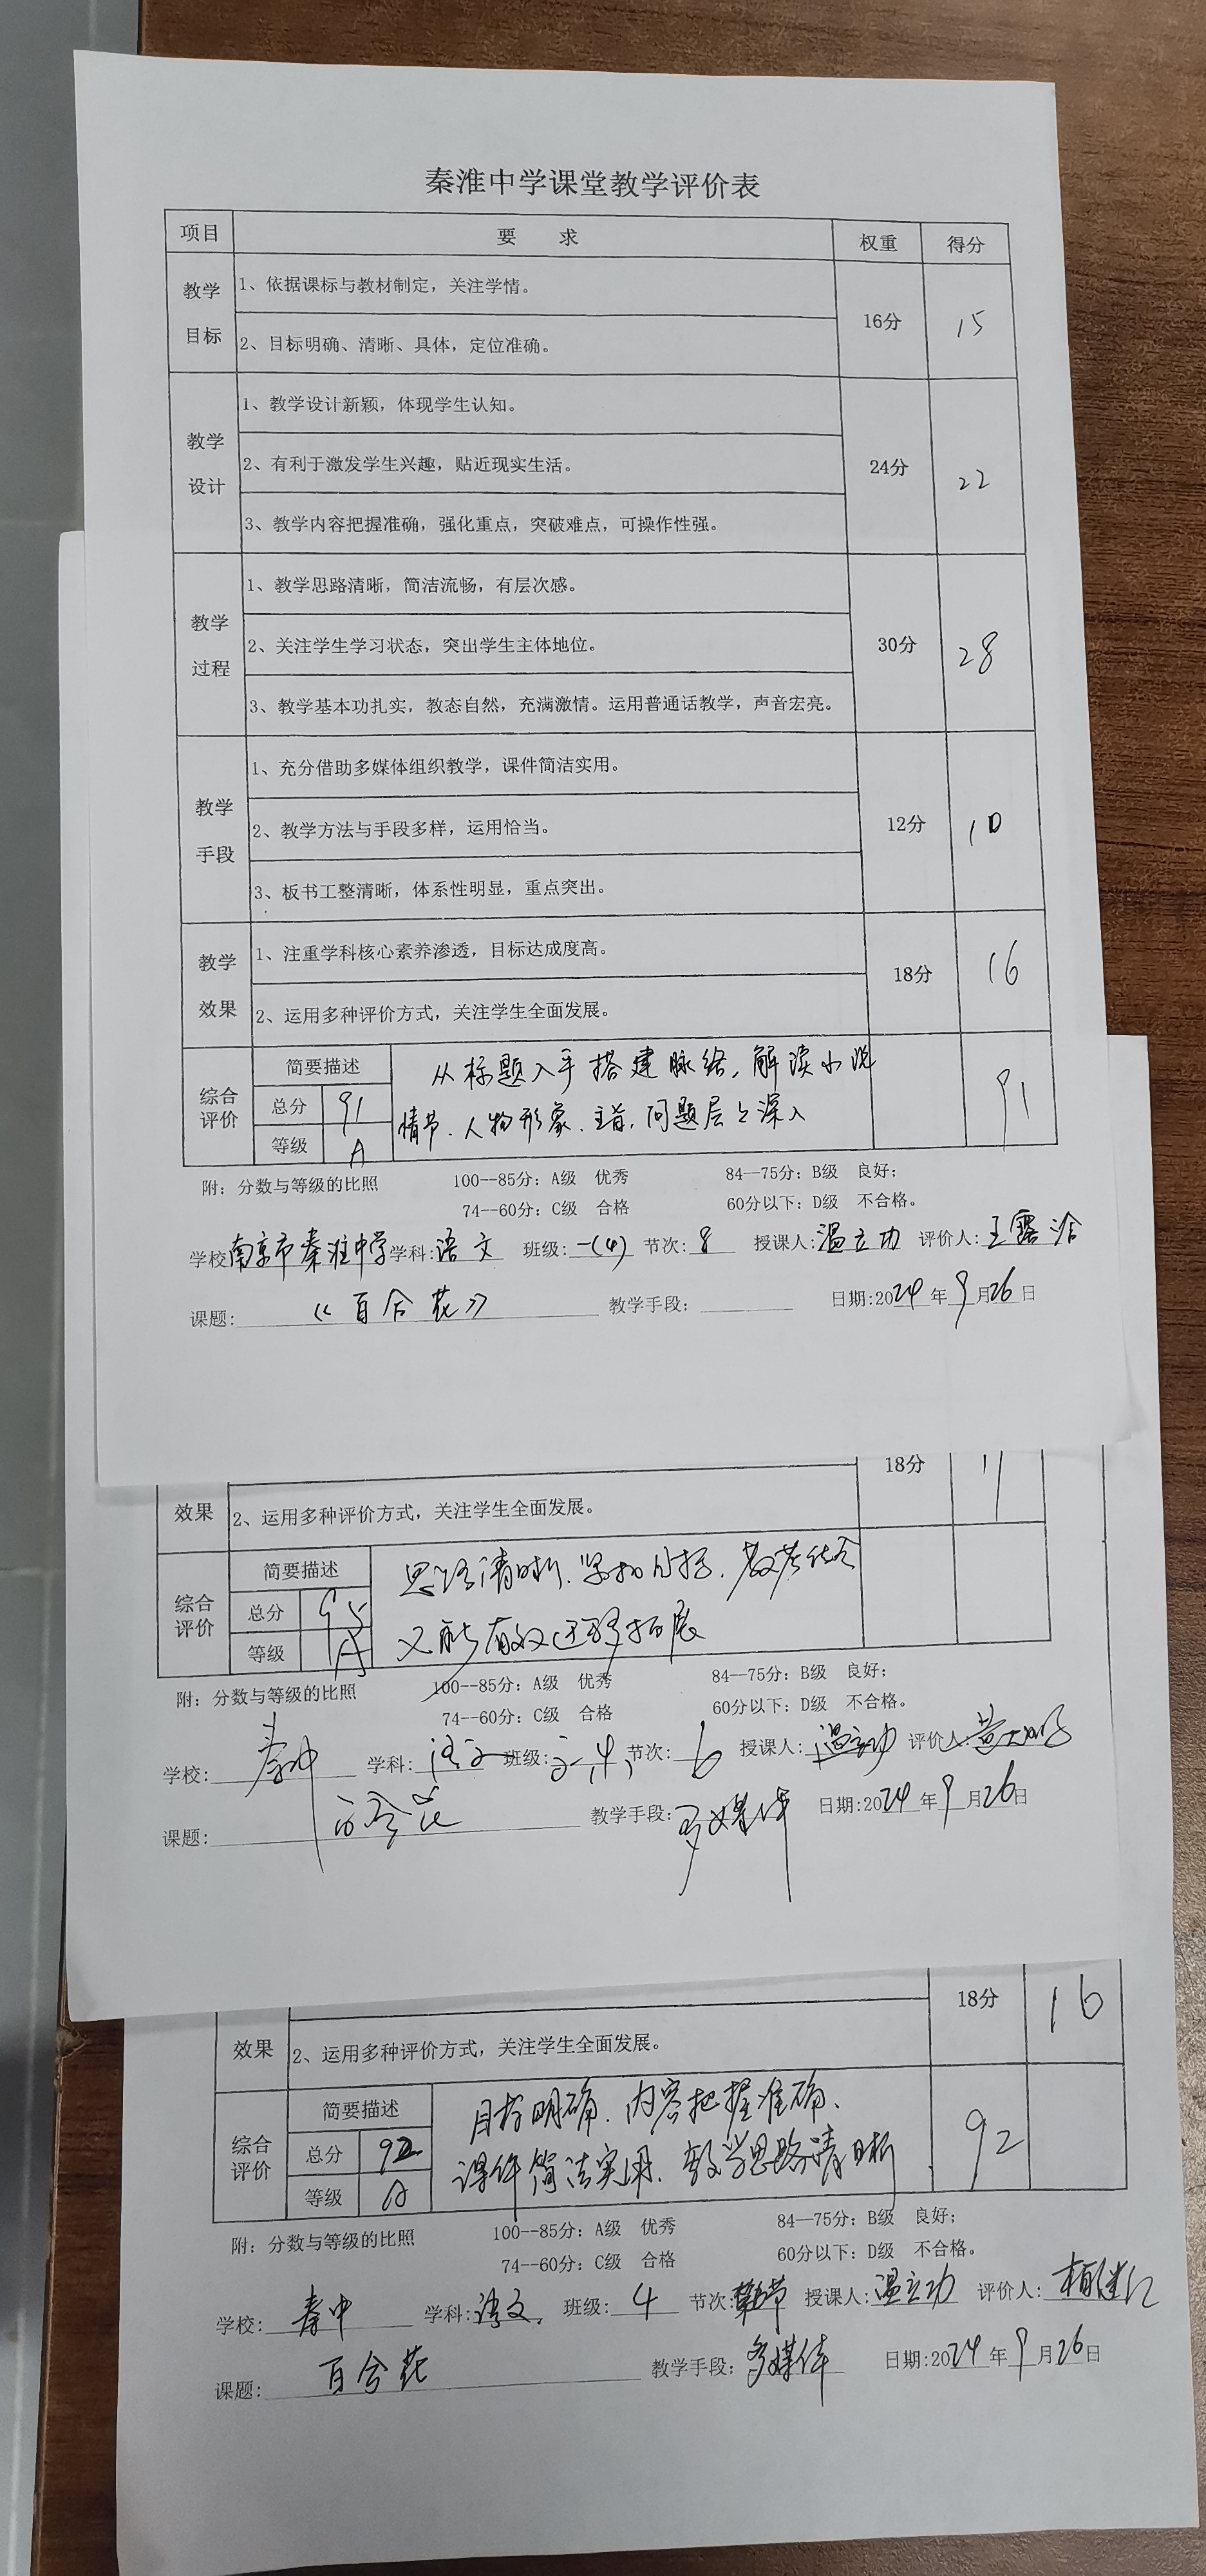 秦淮中学课堂教学评价表
项目 要 求 权重 得分
教学目标 1、依据课标与教材制定，关注学情。 16分 15
2、目标明确、清晰、具体，定位准确。
教学设计 1、教学设计新颖，体现学生认知。 24分 22
2、有利于激发学生兴趣，贴近现实生活。
3、教学内容把握准确，强化重点，突破难点，可操作性强。
教学过程 1、教学思路清晰，简洁流畅，有层次感。 30分 28
2、关注学生学习状态，突出学生主体地位。
3、教学基本功扎实，教态自然，充满激情。运用普通话教学，声音宏亮。
教学手段 1、充分借助多媒体组织教学，课件简洁实用。 12分 10
2、教学方法与手段多样，运用恰当。
3、板书工整清晰，体系性明显，重点突出。
教学效果 1、注重学科核心素养渗透，目标达成度高。 18分 16
2、运用多种评价方式，关注学生全面发展。
综合评价 简要描述 从标题入手搭建脉络，解读小说
总分 91 情节、人物形象、主旨，问题层层深入 91
等级 A
附：分数与等级的比照 100--85分：A级 优秀 84--75分：B级 良好；
74--60分：C级 合格 60分以下：D级 不合格。
学校南京市秦淮中学 学科:语文 班级:一(4) 节次:8 授课人:温立功 评价人:王露
课题:《百合花》 教学手段: 日期:2024年9月26日
18分
效果 2、运用多种评价方式，关注学生全面发展。
综合评价 简要描述 思路清晰、紧扣目标、教考结合
总分 95 又能有效迁移拓展
等级 A
附：分数与等级的比照 100--85分：A级 优秀 84--75分：B级 良好；
74--60分：C级 合格 60分以下：D级 不合格。
学校:秦中 学科:语文 班级: 节次:6 授课人:温立功 评价人:
课题:百合花 教学手段:多媒体 日期:2024年9月26日
18分 16
效果 2、运用多种评价方式，关注学生全面发展。
综合评价 简要描述 目标明确、内容把握准确、
总分 92 课件简洁实用、教学思路清晰 92
等级 A
附：分数与等级的比照 100--85分：A级 优秀 84--75分：B级 良好；
74--60分：C级 合格 60分以下：D级 不合格。
学校:秦中 学科:语文 班级:4 节次: 授课人:温立功 评价人:
课题:百合花 教学手段:多媒体 日期:2024年9月26日